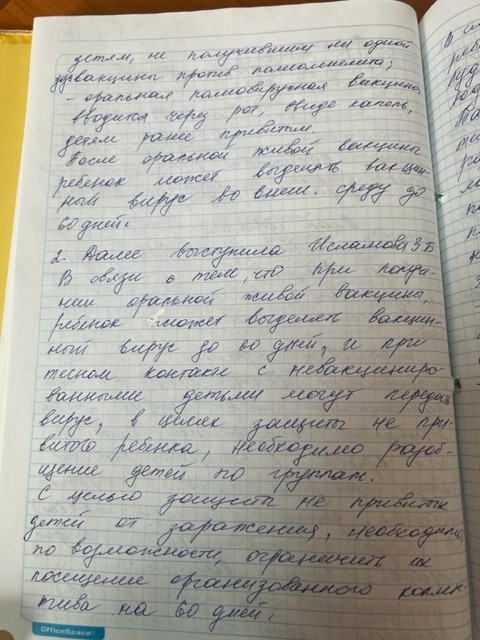 детям, не получившим ни одной
дозы вакцины против полиомиелита;
- оральная полиовирусная вакцина
вводится через рот, в виде капель,
детям ранее привитым.
После оральной живой вакцины
ребенок может выделять вакцин-
ный вирус во внеш. среду до
60 дней.
2. Далее выступила Исламова З.Б.
В связи с тем, что при получе-
нии оральной живой вакцины,
ребенок может выделять вакцин-
ный вирус до 60 дней, и при
тесном контакте с невакциниро-
ванными детьми могут передать
вирус, в целях защиты не при-
витого ребенка, необходимо разоб-
щение детей по группам.
С целью защиты не привитых
детей от заражения, необходимо,
по возможности, ограничить их
посещение организованного коллек-
тива на 60 дней.
OfficeSpace